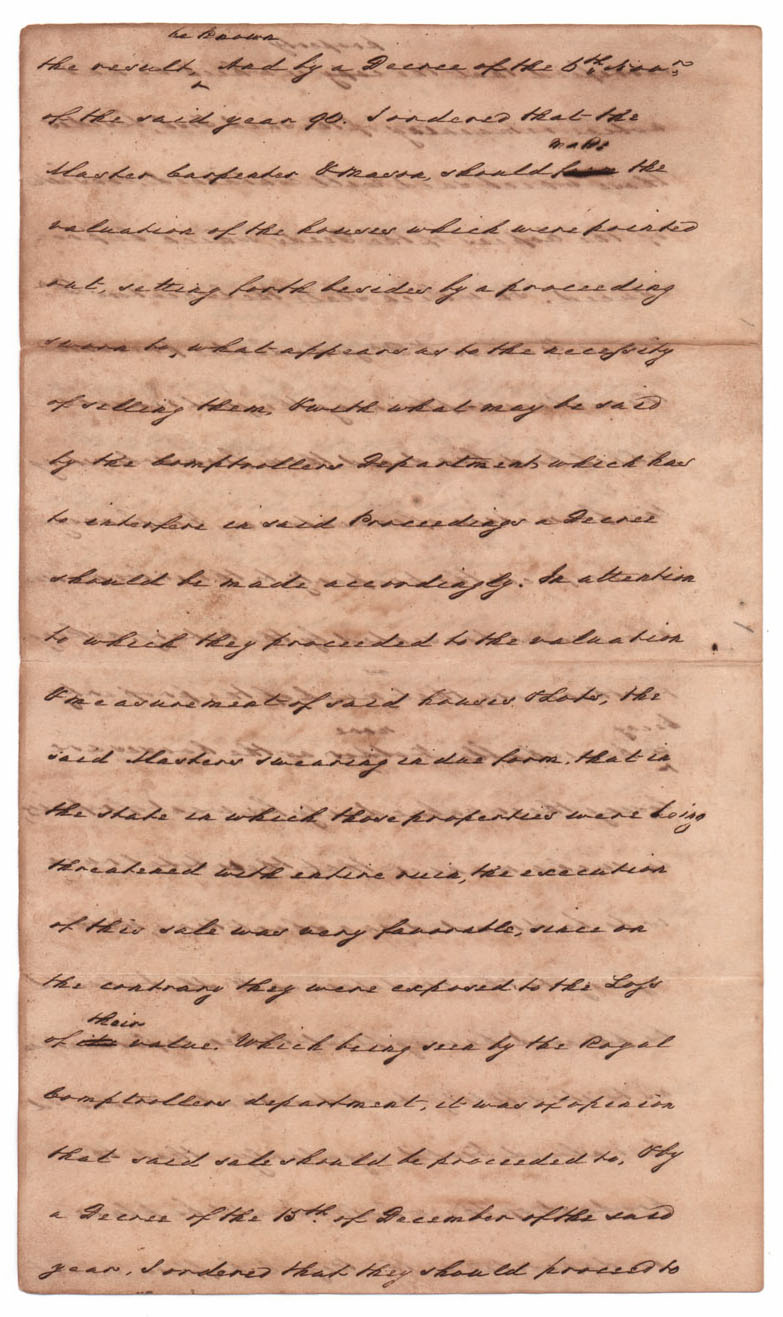 be known
the result, And by a Decree of the 5th. Novr.
of the said year 90. I ordered that the
made
Master Carpenter & mason, should the
valuation of the houses which were pointed
out, setting forth besides by a proceeding
sworn to, what appears as to the necessity
of selling them, & with what may be said
by the Comptrollers Department which has
to interfere in said Proceedings a Decree
should be made accordingly. In attention
to which they proceeded to the valuation
& measurement of said houses & Lots, the
said Masters swearing in due form, that in
the state in which those properties were being
threatened with entire ruin, the execution
of this sale was very favorable, since on
the contrary they were exposed to the Loss
their
of its value. Which being seen by the Royal
Comptrollers department, it was of opinion
that said sale should be proceeded to, & by
a Decree of the 15th. of December of the said
year, I ordered that they should proceed to